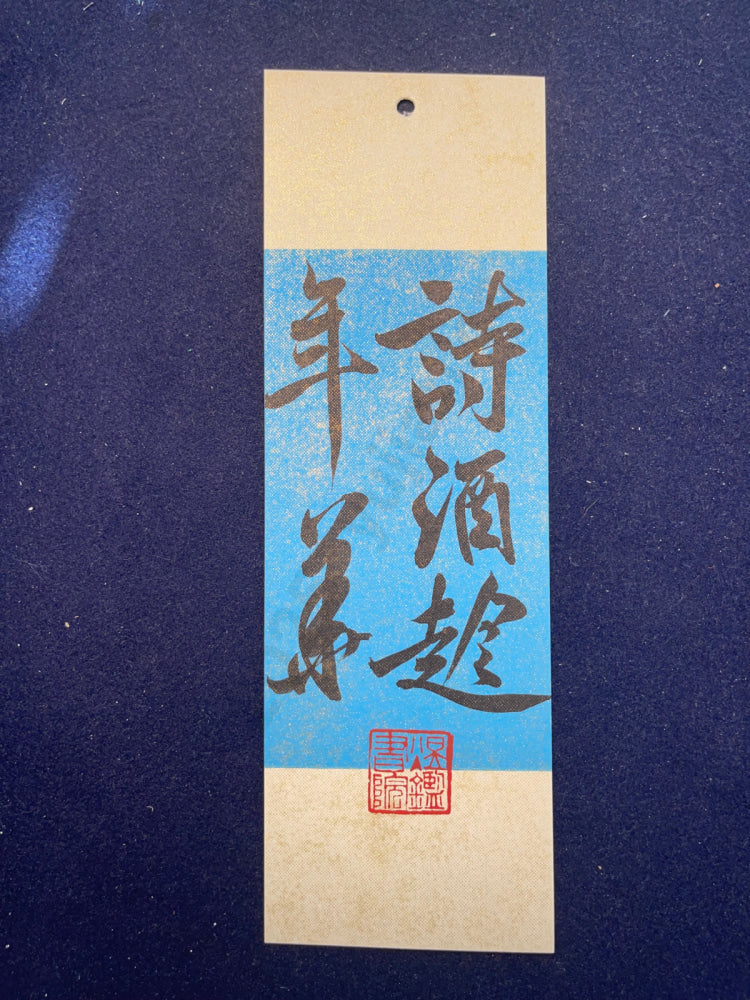 詩酒趁
年華
鑑
書院